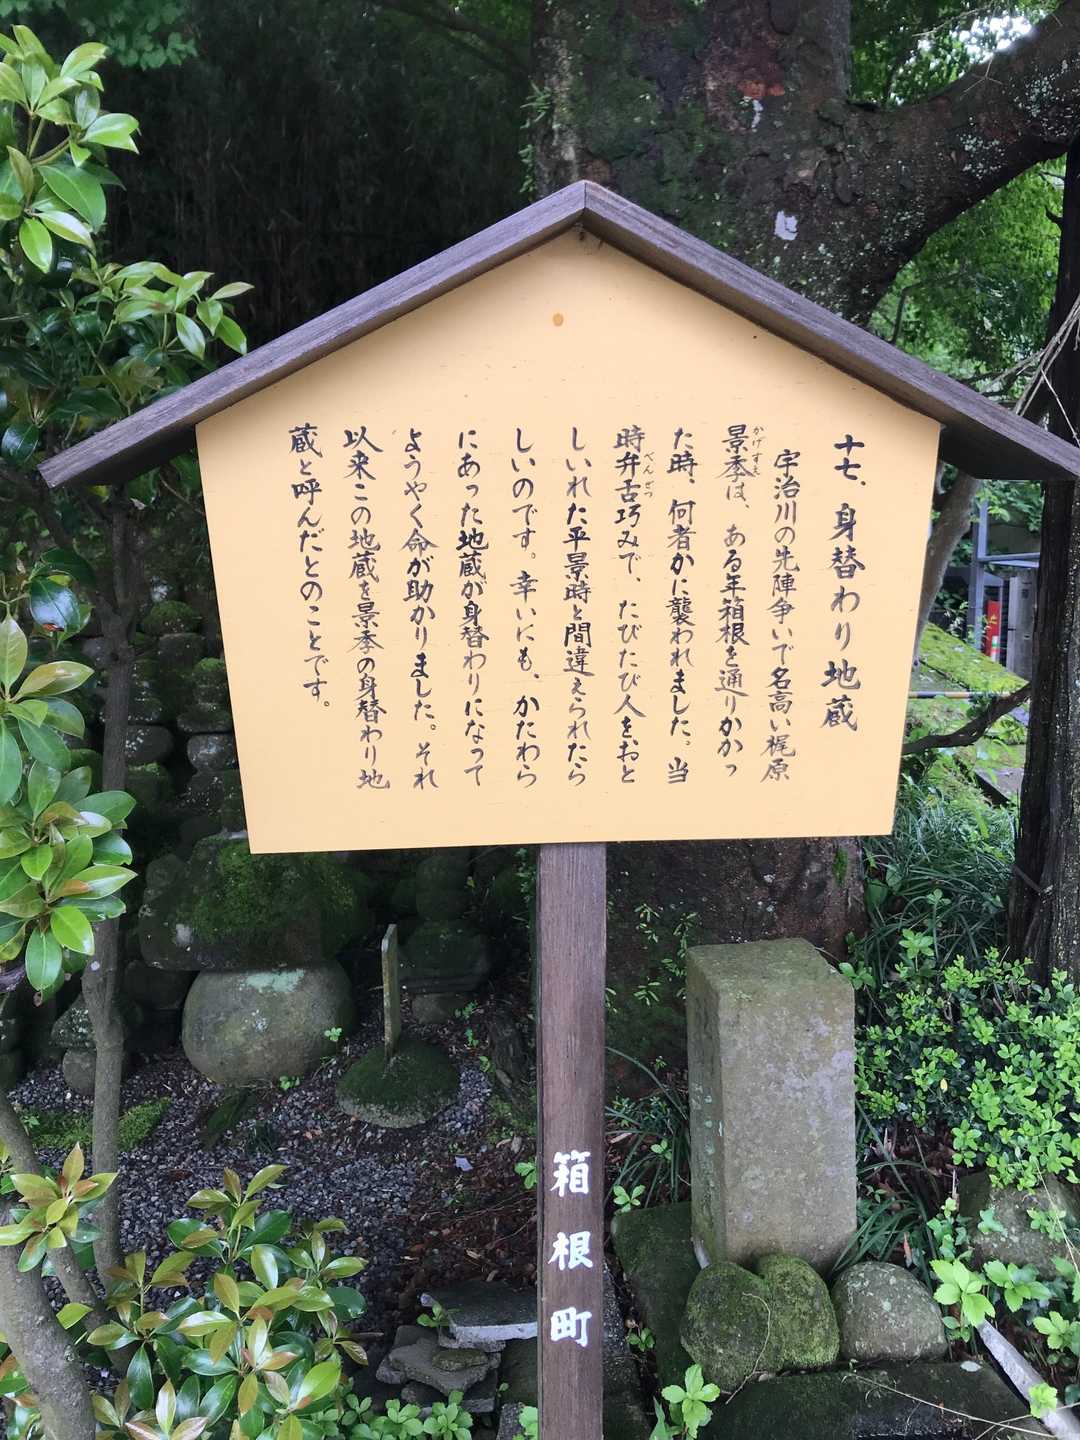 十七、身替わり地蔵
宇治川の先陣争いで名高い梶原
景季は、ある年箱根を通りかかっ
かげすえ
た時、何者かに襲われました。当
時弁舌巧みで、たびたび人をおと
べんぜつ
しいれた平景時と間違えられたら
しいのです。幸いにも、かたわら
にあった地蔵が身替わりになって
ようやく命が助かりました。それ
以来この地蔵を景季の身替わり地
蔵と呼んだとのことです。
箱根町